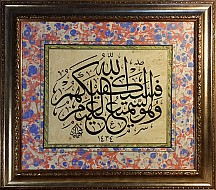 فسيكفيكهم الله وهو السميع العليم
١٤٣٤